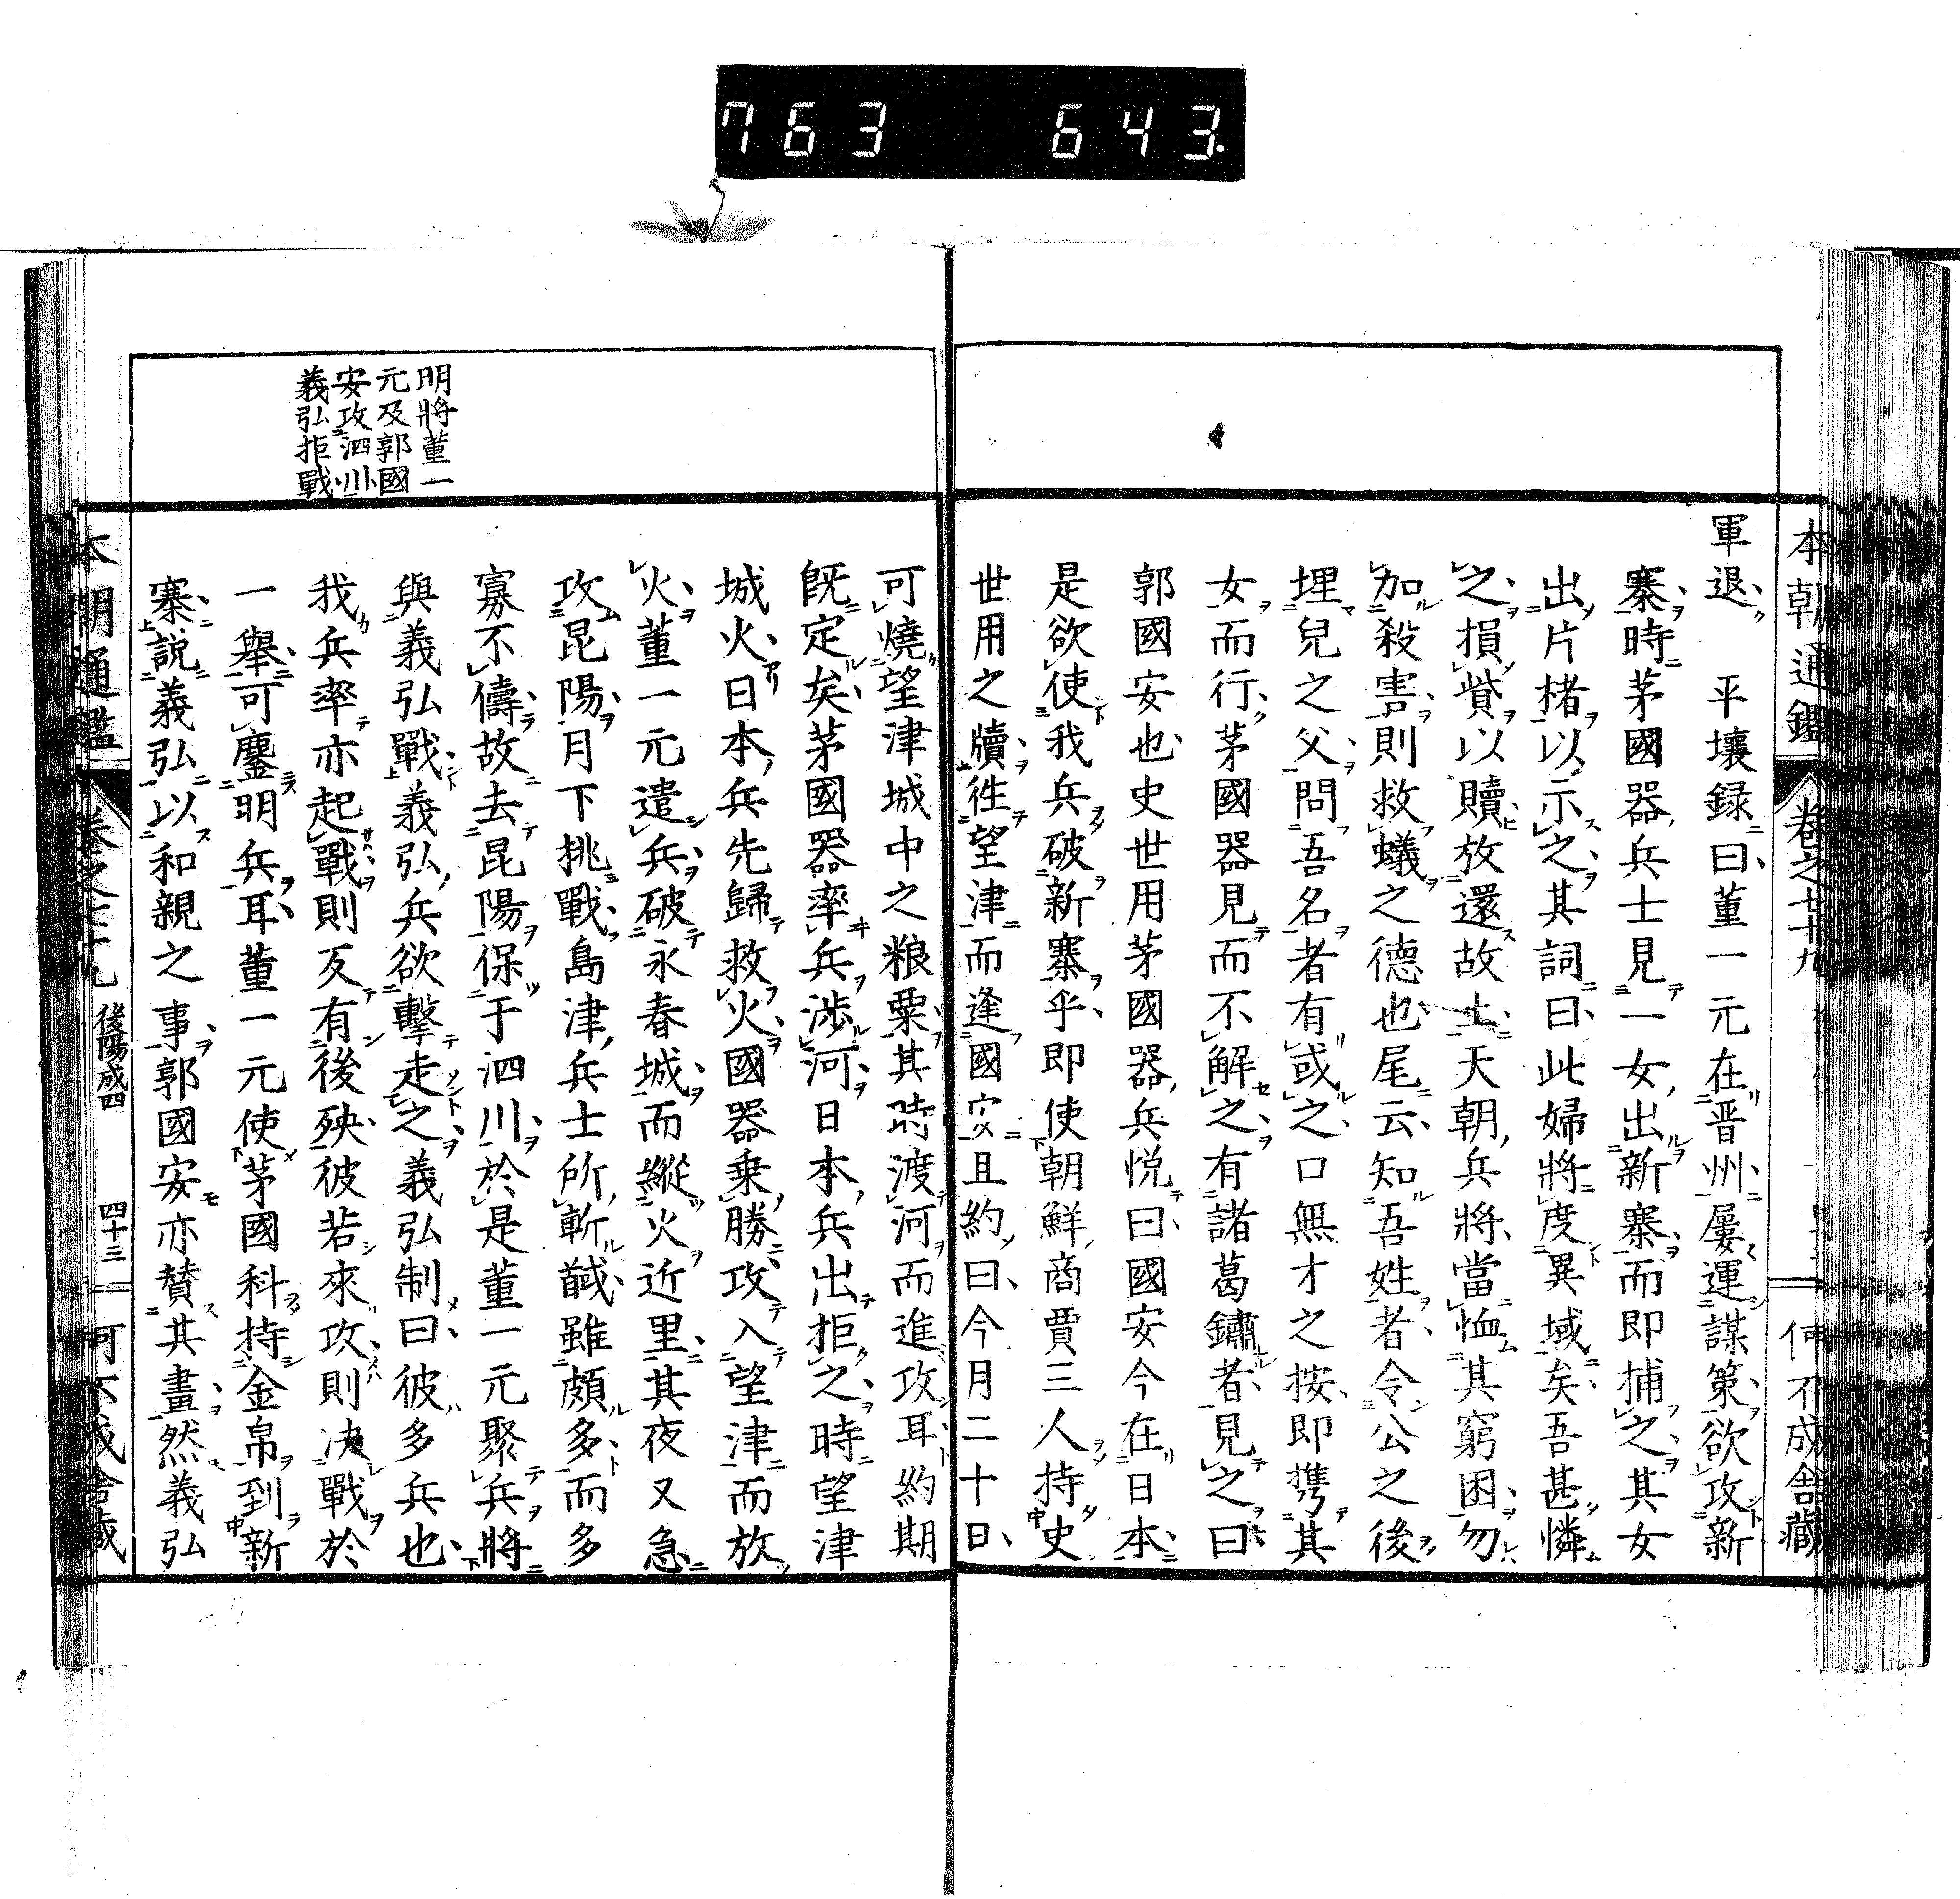 763 643.
本朝通鑑 卷之七十九 何不成舍藏
軍退 平壤録曰董一元在晋州屢運謀策欲攻新
寨時茅國器兵士見一女出新寨而即捕之其女
出片楮以示之其詞曰此婦將度異域矣吾甚憐
之損貲以贖放還故土天朝兵將當恤其窮困勿
加殺害則救蟻之德也尾云知吾姓者令公之後
埋兒之父問吾名者有或之口無才之按即携其
女而行茅國器見而不解之有諸葛鏽者見之曰
郭國安也史世用茅國器兵悦曰國安今在日本
是欲使我兵破新寨乎即使朝鮮商賈三人持史
世用之牘徃望津而逢國安且約曰今月二十日
可燒望津城中之粮粟其時渡河而進攻耳約期
既定矣茅國器率兵渉河日本兵出拒之時望津
城火日本兵先歸救火國器乗勝攻入望津而放
火董一元遣兵破永春城而縱火近里其夜又急
攻昆陽月下挑戰島津兵士所斬馘雖頗多而多
寡不儔故去昆陽保于泗川於是董一元聚兵將
與義弘戰義弘兵欲擊走之義弘制曰彼多兵也
我兵率亦起戰則反有後殃彼若來攻則决戰於
一舉可鏖明兵耳董一元使茅國科持金帛到新
寨説義弘以和親之事郭國安亦賛其畫然義弘
明將董一
元及郭國
安攻泗川
義弘拒戰
本朝通鑑 卷之七十九 後陽成四 四十三 何不成舍藏